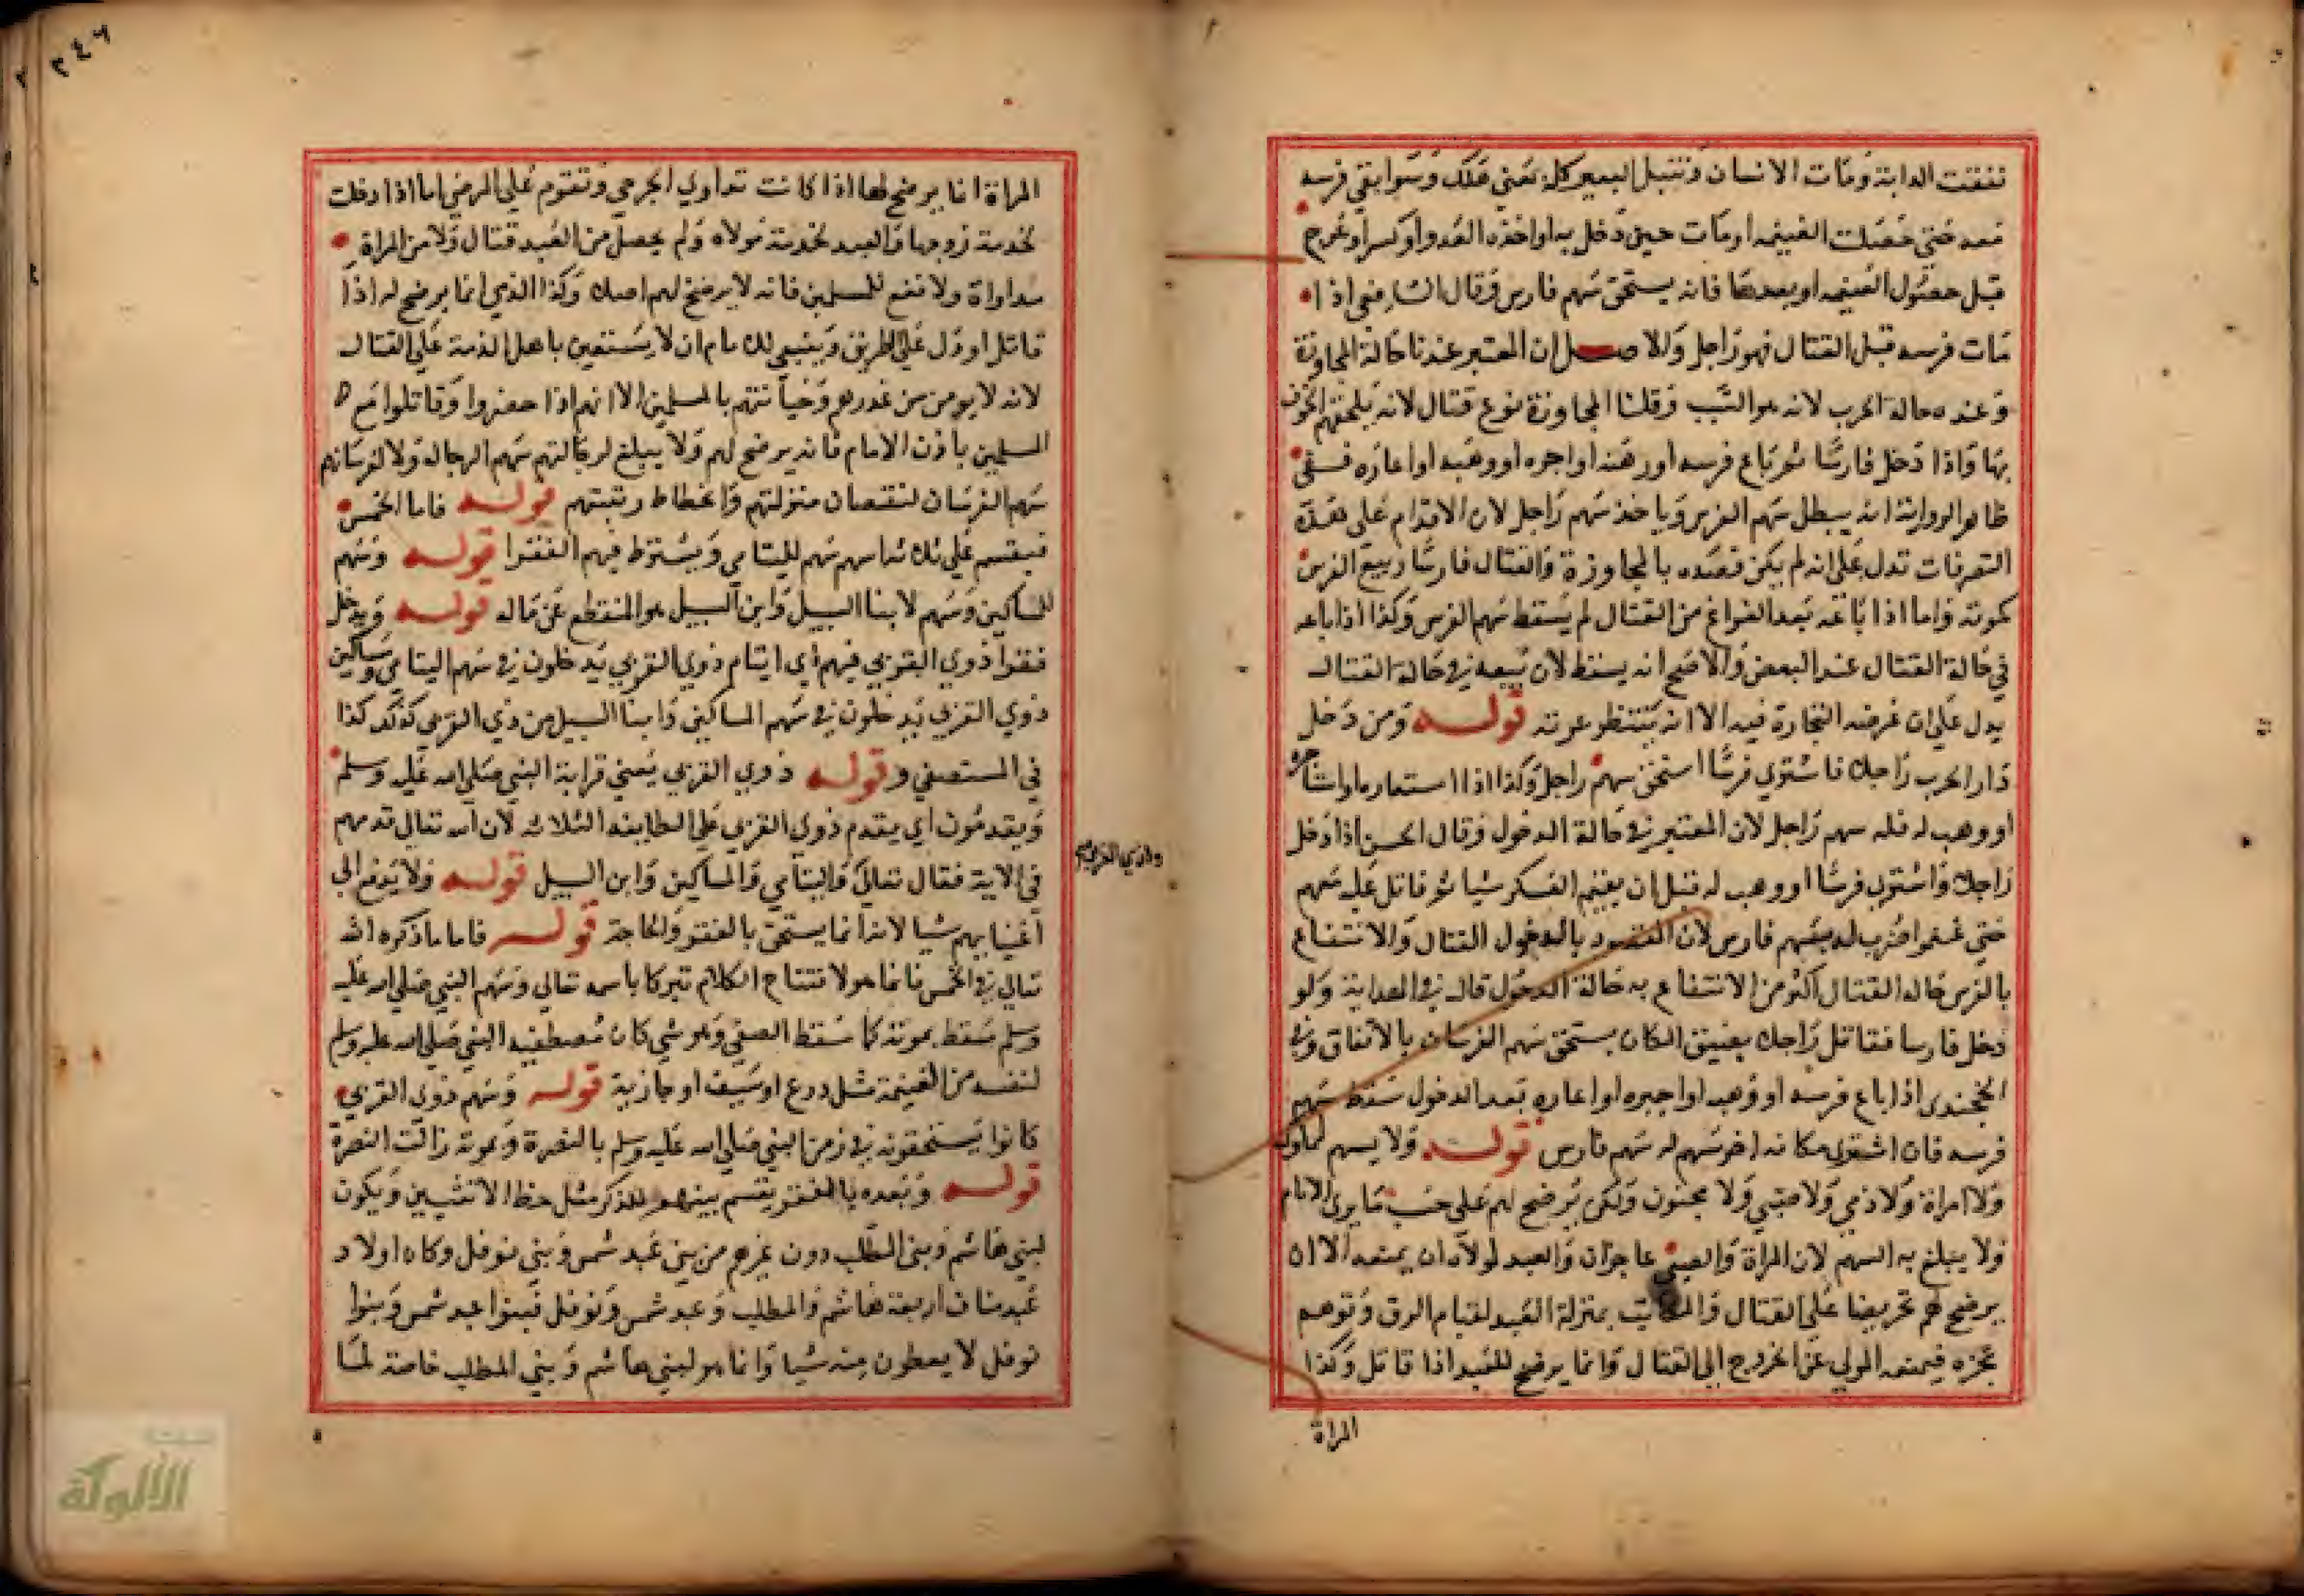 نفقت الدابة ومات الانسان وتنبل البعير كله يعني هلك وسوا بقي فرسه
معه حتى حصلت الغنيمه او مات حين دخل به او اخذه العدو او كسر او عرج
قبل حصول الغنيمه او بعدها فانه يستحق سهم فارس وقال الشافعي اذا
مات فرسه قبل القتال فهو راجل والاصل ان المعتبر عندنا حالة المجاوزة
وعنده حالة الحرب لانه هو السبب وقلنا المجاوزة نوع قتال لانه يلحقهم الخوف
بها واذا دخل فارسا ثم باع فرسه او رهنه او اجره او وهبه او اعاره ففي
ظاهر الرواية انه يبطل سهم الفرس وياخذ سهم راجل لان الاقدام على هذه
التصرفات تدل على انه لم يكن قصده بالمجاوزة والقتال فارسا وبيع الفرس
كموته واما اذا باعه بعد الفراغ من القتال لم يسقط سهم الفرس وكذا اذا باعه
في حالة القتال عند البعض والاصح انه يسقط لان بيعه في حالة القتال
يدل على ان غرضه التجارة فيه الا انه ينتظر عزته قوله ومن دخل
دار الحرب راجلا فاشترى فرسا استحق سهم راجل وكذا اذا استعارها او استاجره
او وهب له فله سهم راجل لان المعتبر في حالة الدخول وقال الحسن اذا دخل
راجلا واشترى فرسا او وهب له قبل ان يغنم العسكر شيا ثم قاتل عليه معهم
حتى غنموا ضرب له بسهم فارس لان المقصود بالدخول القتال والانتفاع
بالفرس حاله القتال اكثر من الانتفاع به حالة الدخول قال في الهداية ولو
دخل فارسا فقاتل راجلا بضيق المكان يستحق سهم الفرسان بالاتفاق وفي
الخجندى اذا باع فرسه او وهبه او اجره او اعاره بعد الدخول سقط سهم
فرسه فان اشترى مكانه اخر سهم له سهم فارس قوله ولا يسهم لمملوك
ولا امراة ولا ذمي ولا صبي ولا مجنون ولكن يرضخ لهم على حسب ما يرى الامام
ولا يبلغ به السهم لان المراة والصبي عاجزان والعبد لمولاه ان يمنعه الا ان
يرضخ لهم تحريضا على القتال والمكاتب بمنزلة العبد لقيام الرق وتوهم
عجزه فيمنعه المولى عن الخروج الى القتال وانما يرضخ للعبد اذا قاتل وكذا
المراة
٢٤٦
المراة انما يرضخ لها اذا كانت تداوي الجرحى وتقوم على المرضى اما اذا دخلت
لخدمة زوجها والعبد لخدمة مولاه ولم يحصل من العبد قتال ولا من المراة
مداواة ولا نفع للمسلمين فانه لا يرضخ لهم اصلا وكذا الذمي انما يرضخ له اذا
قاتل او دل على الطريق وينبغي للامام ان لا يستعين باهل الذمة على القتال
لانه لا يومن من غدرهم وخيانتهم بالمسلمين الا انهم اذا حضروا وقاتلوا مع
المسلمين باذن الامام فانه يرضخ لهم ولا يبلغ لرجالتهم سهم الرجال ولا لفرسانهم
سهم الفرسان لنقصان منزلتهم وانحطاط رتبتهم قوله فاما الخمس
فيقسم على ثلاثة اسهم سهم لليتامى ويشترط فيهم الفقرا قوله وسهم
للمساكين وسهم لابنا السبيل وابن السبيل هو المنقطع عن ماله قوله ويدخل
فقرا ذوي القربى فيهم اي ايتام ذوي القربى يدخلون في سهم اليتامى ومساكين
ذوي القربى يدخلون في سهم المساكين وابنا السبيل من ذي القربى كذلك كذا
في المستصفى وقوله ذوي القربى يعني قرابة النبي صلى الله عليه وسلم
ويقدمون اي يقدم ذوي القربى على الطايفة الثلاثه لان الله تعالى قدمهم
في الاية فقال تعالى واليتامى والمساكين وابن السبيل قوله ولا يدفع الى
ولذي القربى
اغنيايهم شيا لانه انما يستحق بالفقر والحاجة قوله فاما ما ذكره الله
تعالى في الخمس فانما هو لافتتاح الكلام تبركا باسمه تعالى وسهم النبي صلى الله عليه
وسلم سقط بموته كما سقط الصفي وهو شي كان يصطفيه النبي صلى الله عليه وسلم
لنفسه من الغنيمة مثل درع او سيف او جارية قوله وسهم ذوي القربى
كانوا يستحقونه في زمن النبي صلى الله عليه وسلم بالنصرة وبموته زالت النصرة
قوله وبعده بالفقر يقسم بينهم للذكر مثل حظ الانثيين ويكون
لبني هاشم وبنى المطلب دون غيرهم من بني عبد شمس وبني نوفل وكان اولاد
عبد مناف اربعة هاشم والمطلب وعبد شمس ونوفل فبنوا عبد شمس وبنوا
نوفل لا يعطون منه شيا وانما هو لبني هاشم وبني المطلب خاصة لما
الألوكة